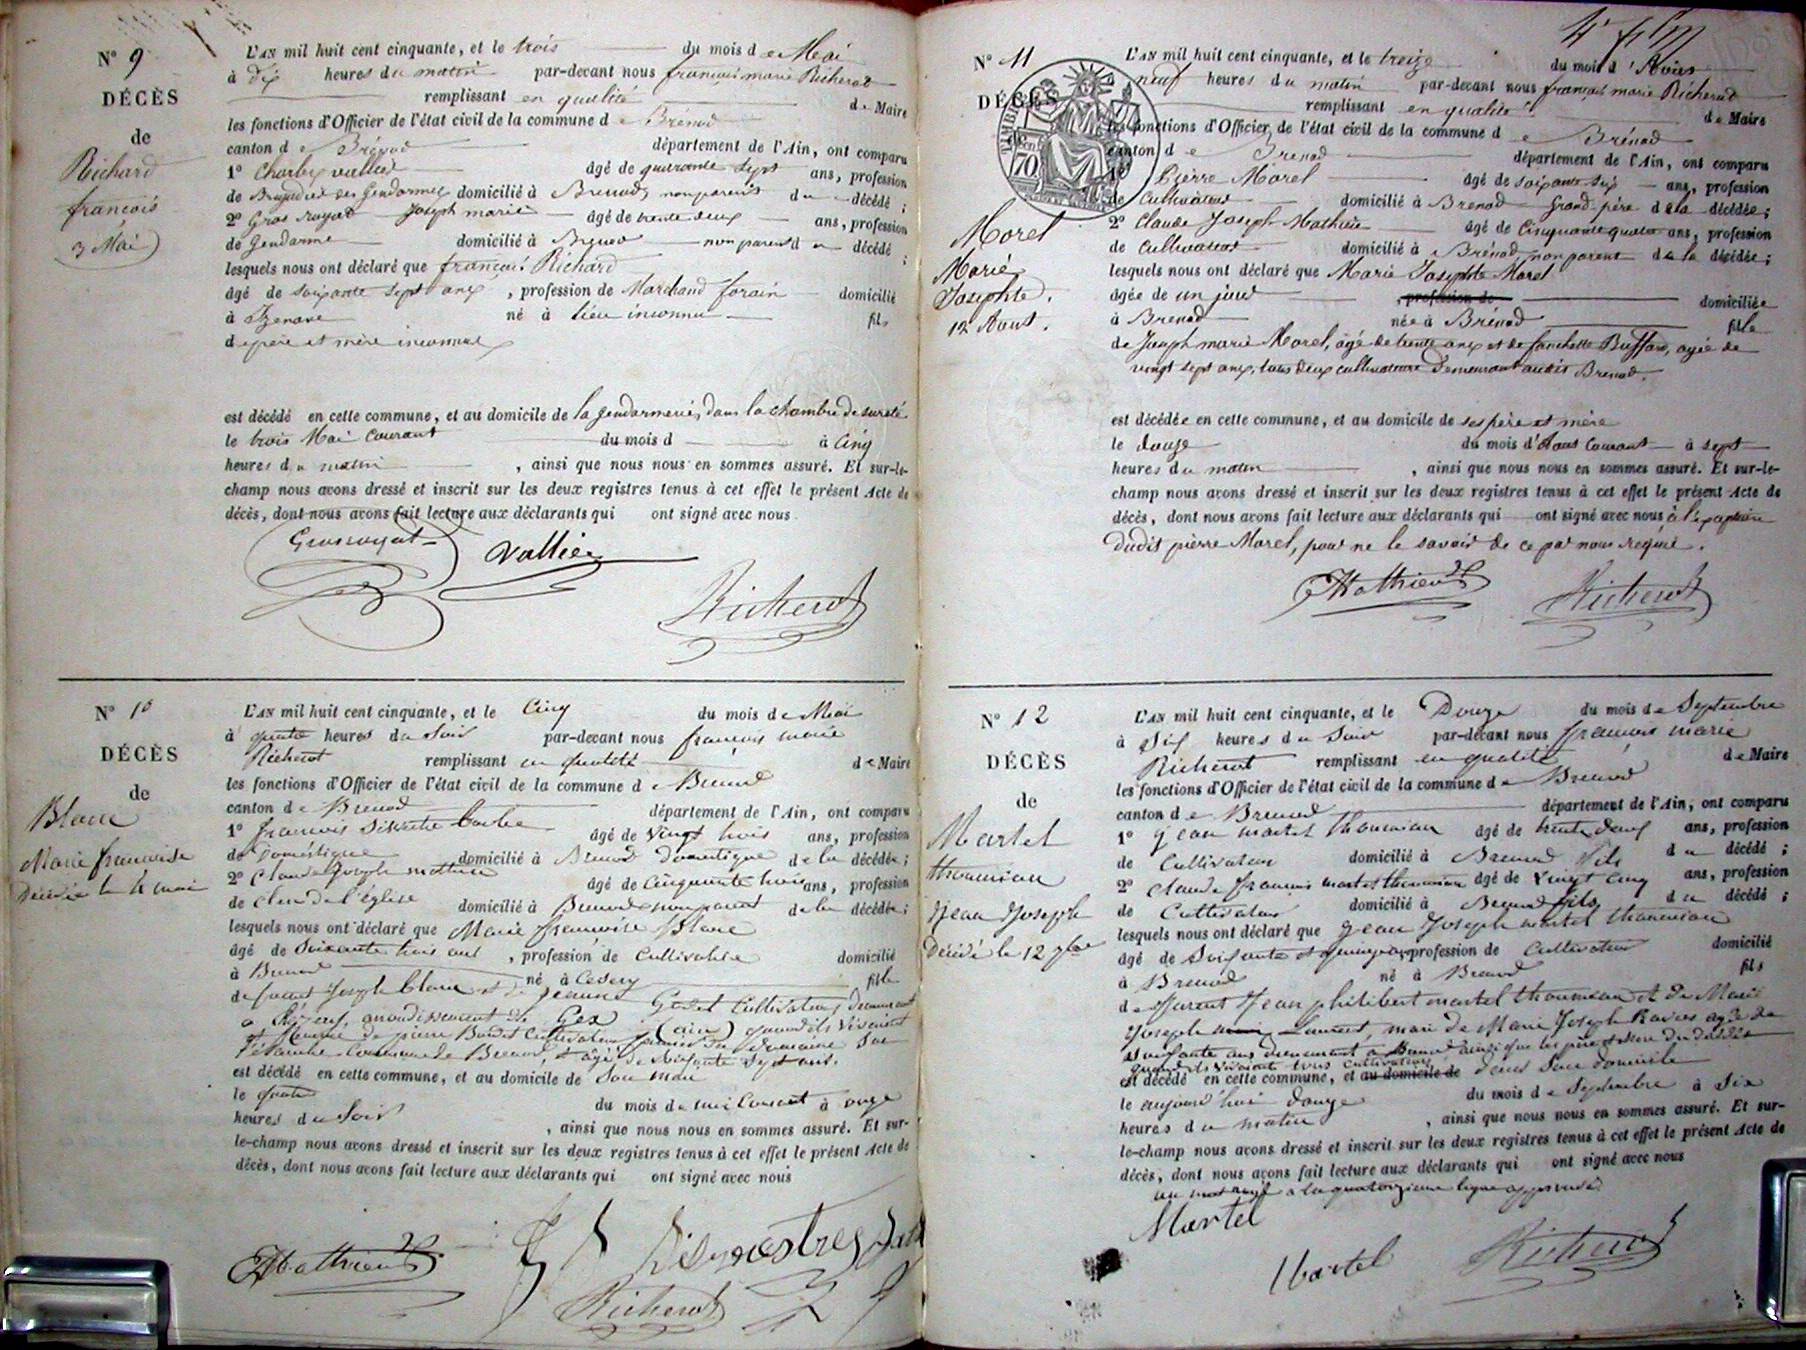 N° 9
DÉCÈS
de
Richard
françois
3 Mai
L'AN mil huit cent cinquante, et le trois du mois de Mai
à dix heures du matin par-devant nous françois marie Richerot
remplissant en qualité de Maire
les fonctions d'Officier de l'état civil de la commune de Brénod
canton de Brénod département de l'Ain, ont comparu
1° Charles vallier âgé de quarante sept ans, profession
de Brigadier des Gendarmes domicilié à Brenod, non parent du décédé ;
2° Gros royat Joseph marie âgé de trente deux ans, profession
de Gendarme domicilié à Brenod non parent du décédé ;
lesquels nous ont déclaré que françois Richard
âgé de soixante sept ans , profession de Marchand forain domicilié
à né à lieu inconnu fils
de père et mère inconnus
est décédé en cette commune, et au domicile de la gendarmerie, dans la chambre de sureté
le trois Mai Courant du mois d à Cinq
heures du matin , ainsi que nous nous en sommes assuré. Et sur-le-
champ nous avons dressé et inscrit sur les deux registres tenus à cet effet le présent Acte de
décès, dont nous avons fait lecture aux déclarants qui ont signé avec nous
Grosroyat Vallier
Richerot
N° 10
DÉCÈS
de
Blanc
Marie françoise
Décédée le 4 mai
L'AN mil huit cent cinquante, et le Cinq du mois de Mai
à quatre heures du Soir par-devant nous françois marie
Richerot remplissant en qualité de Maire
les fonctions d'Officier de l'état civil de la commune de Brenod
canton de Brenod département de l'Ain, ont comparu
1° françois âgé de vingt trois ans, profession
de Domestique domicilié à Brenod Domestique de la décédée ;
2° Claude Joseph mathieu âgé de Cinquante trois ans, profession
de Clerc de l'église domicilié à Brenod non parent de la décédée ;
lesquels nous ont déclaré que Marie françoise Blanc
âgé de Soixante trois ans , profession de Cultivatrice domicilié
à Brenod né à fille
de Joseph blanc et de Jeanne Cultivateurs demeurant
à arrondissement de Gex (ain) quand ils vivaient
et femme de pierre Cultivateur fermier du domaine
commune de Brenod, âgé de Soixante Sept ans.
est décédé en cette commune, et au domicile de Son mari
le quatre du mois de mai Courant à onze
heures du Soir , ainsi que nous nous en sommes assuré. Et sur-
le-champ nous avons dressé et inscrit sur les deux registres tenus à cet effet le présent Acte de
décès, dont nous avons fait lecture aux déclarants qui ont signé avec nous
Mathieu
Richerot
N° 11
DÉCÈS
de
Morel
Marie
Josephte.
12 Aout.
TIMBRE
70
L'AN mil huit cent cinquante, et le treize du mois d'Aout
à neuf heures du matin par-devant nous françois marie Richerot
remplissant en qualité de Maire
les fonctions d'Officier de l'état civil de la commune de Brénod
canton de Brenod département de l'Ain, ont comparu
1° Pierre Morel âgé de soixante six ans, profession
de Cultivateur domicilié à Brenod Grand-père de la décédée ;
2° Claude Joseph Mathieu âgé de Cinquante quatre ans, profession
de Cultivateur domicilié à Brénod non parent de la décédée ;
lesquels nous ont déclaré que Marie Josephte Morel
âgée de un jour , profession de domiciliée
à Brenod née à Brénod fille
de Joseph marie Morel, âgé de trente ans et de fanchette Buffard, agée de
vingt sept ans, tous deux cultivateurs Demeurant audit Brenod.
est décédée en cette commune, et au domicile de ses père et mère
le douze du mois d'Aout Courant à sept
heures du matin , ainsi que nous nous en sommes assuré. Et sur-le-
champ nous avons dressé et inscrit sur les deux registres tenus à cet effet le présent Acte de
décès, dont nous avons fait lecture aux déclarants qui ont signé avec nous à l'exception
dudit pierre Morel, pour ne le savoir de ce par nous requis.
Mathieu Richerot
N° 12
DÉCÈS
de
Martel
thoumian
Jean Joseph
Décédé le 12 7bre
L'AN mil huit cent cinquante, et le Douze du mois de Septembre
à Six heures du Soir par-devant nous françois marie
Richerot remplissant en qualité de Maire
les fonctions d'Officier de l'état civil de la commune de Brenod
canton de Brenod département de l'Ain, ont comparu
1° jean martel thoumian âgé de trente deux ans, profession
de Cultivateur domicilié à Brenod fils du décédé ;
2° claude françois martel thoumian âgé de vingt cinq ans, profession
de Cultivateur domicilié à Brenod fils du décédé ;
lesquels nous ont déclaré que jean Joseph martel thoumian
âgé de Soixante et quinze ans profession de Cultivateur domicilié
à Brenod né à Brenod fils
de Jean philibert martel thoumian et de Marie
Joseph mari de Marie Joseph Ravier agée de
Soixante ans demeurant à Brenod ainsi que les père et Mère du décédé
quand ils vivaient tous cultivateurs
est décédé en cette commune, et au domicile de dans Son domicile
le aujourd'hui douze du mois de Septembre à Six
heures du matin , ainsi que nous nous en sommes assuré. Et sur-
le-champ nous avons dressé et inscrit sur les deux registres tenus à cet effet le présent Acte de
décès, dont nous avons fait lecture aux déclarants qui ont signé avec nous
un mot rayé a la quatorzieme ligne approuvé
Martel
Martel Richerot